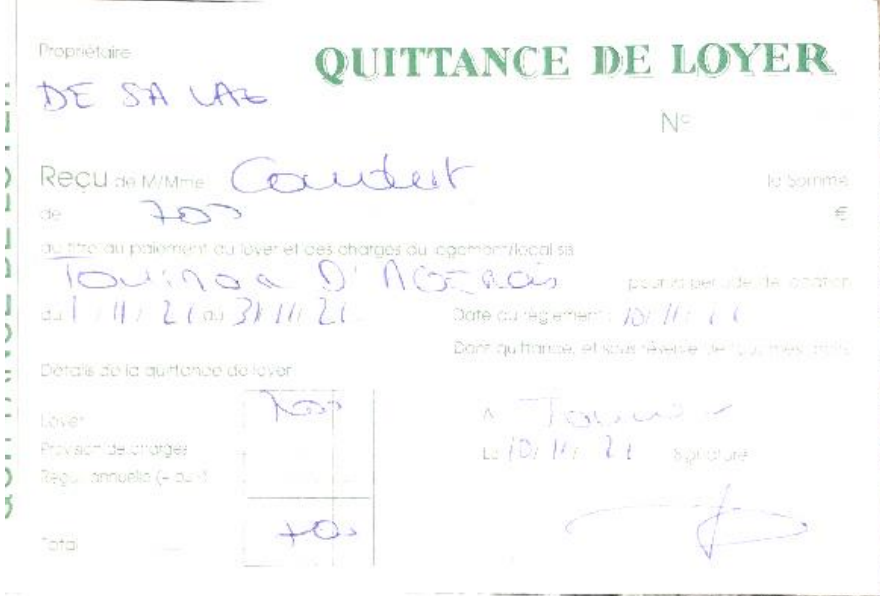 Propriétaire
QUITTANCE DE LOYER
DE SA VAZ
N°
Reçu de M/Mme la Somme
de 700 €
au titre du paiement du loyer et des charges du logement/local sis
pour la période de location
du 1/11/21 au 31/11/21
Date du règlement : 10/11/21
Dont quittance, et sous réserve de tous mes droits
Détails de la quittance de loyer
Loyer 700
Provision de charges
Le 10/11/21 Signature
Total 700
QUITTANCE DE LOYER